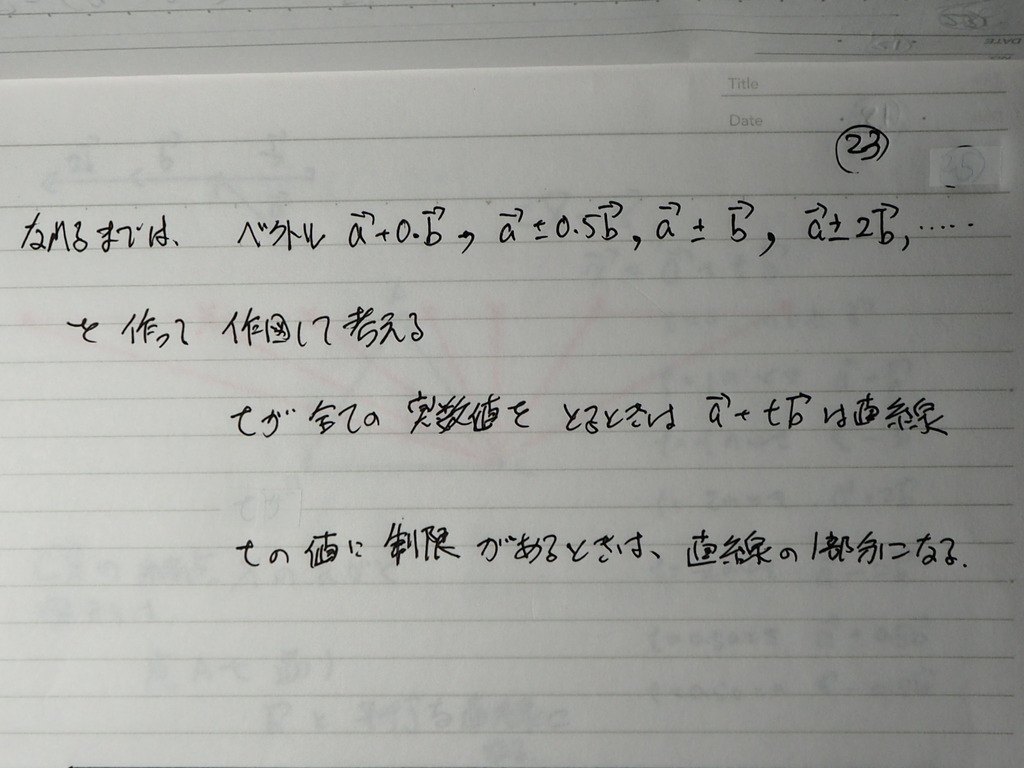 Title
Date
23
なれるまでは、 ベクトル a⃗+0·b⃗, a⃗±0.5b⃗, a⃗±b⃗, a⃗±2b⃗, ‥‥‥
を 作って 作図して考える
tが 全ての 実数値を とるときは a⃗+tb⃗ は直線
tの 値に 制限 があるときは、直線の1部分になる.